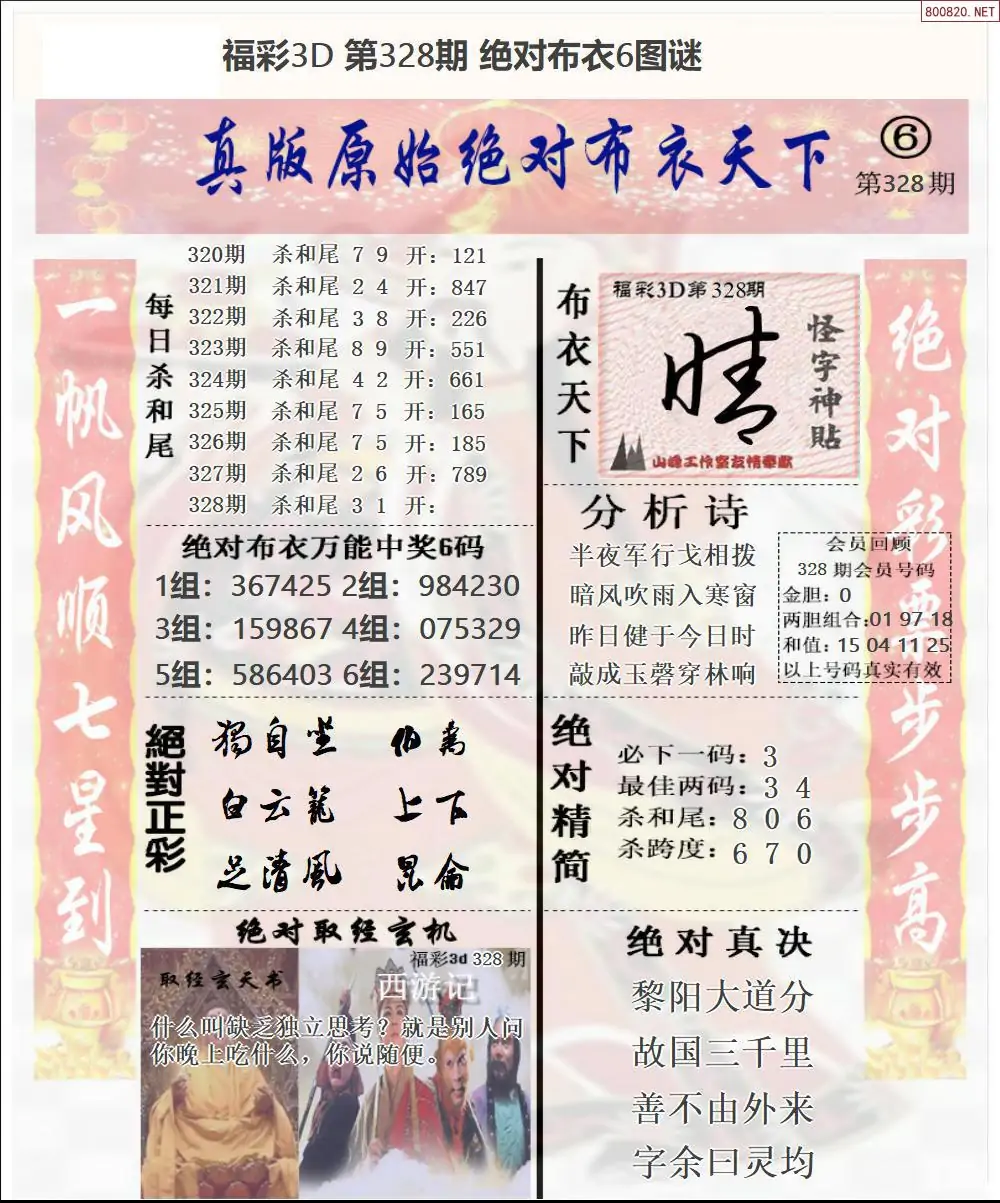 800820.NET
福彩3D 第328期 绝对布衣6图谜
真版原始绝对布衣天下
⑥
第328期
一帆风顺七星到
每日杀和尾
320期 杀和尾 7 9 开：121
321期 杀和尾 2 4 开：847
322期 杀和尾 3 8 开：226
323期 杀和尾 8 9 开：551
324期 杀和尾 4 2 开：661
325期 杀和尾 7 5 开：165
326期 杀和尾 7 5 开：185
327期 杀和尾 2 6 开：789
328期 杀和尾 3 1 开：
绝对布衣万能中奖6码
1组：367425 2组：984230
3组：159867 4组：075329
5组：586403 6组：239714
絕對正彩
獨自坐 伯喬
白云笼 上下
足清風 昆侖
绝对取经玄机
福彩3d 328 期
取经玄天书
西游记
什么叫缺乏独立思考？就是别人问
你晚上吃什么，你说随便。
布衣天下
福彩3D第328期
晴
怪字神贴
山峰工作室友情奉献
分析诗
半夜军行戈相拨
暗风吹雨入寒窗
昨日健于今日时
敲成玉磬穿林响
会员回顾
328 期会员号码
金胆：0
两胆组合:01 97 18
和值：15 04 11 25
以上号码真实有效
绝对精简
必下一码：3
最佳两码：3 4
杀和尾：8 0 6
杀跨度：6 7 0
绝对真决
黎阳大道分
故国三千里
善不由外来
字余曰灵均
绝对彩票步步高